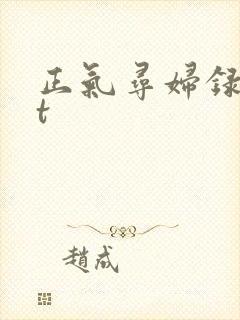 正氣尋婦録
t
趙成